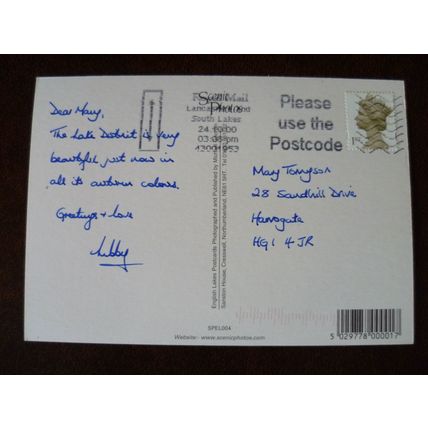 Dear Mary,
The Lake District is very
beautiful just now in
all its autumn colours.
Greetings + love
Libby
Scenic
Photos
Mail
South Lakes
24.10.00
03:06 pm
43001953
Please
use the
Postcode
1st
Mary
28 Sandhill Drive
Harrogate
HG1 4JR
English Lakes Postcards Photographed and Published by
Sanston House, Cresswell, Northumberland, NE61 5HT. Tel
SPEL004
Website: www.scenicphotos.com
5 029778 000017